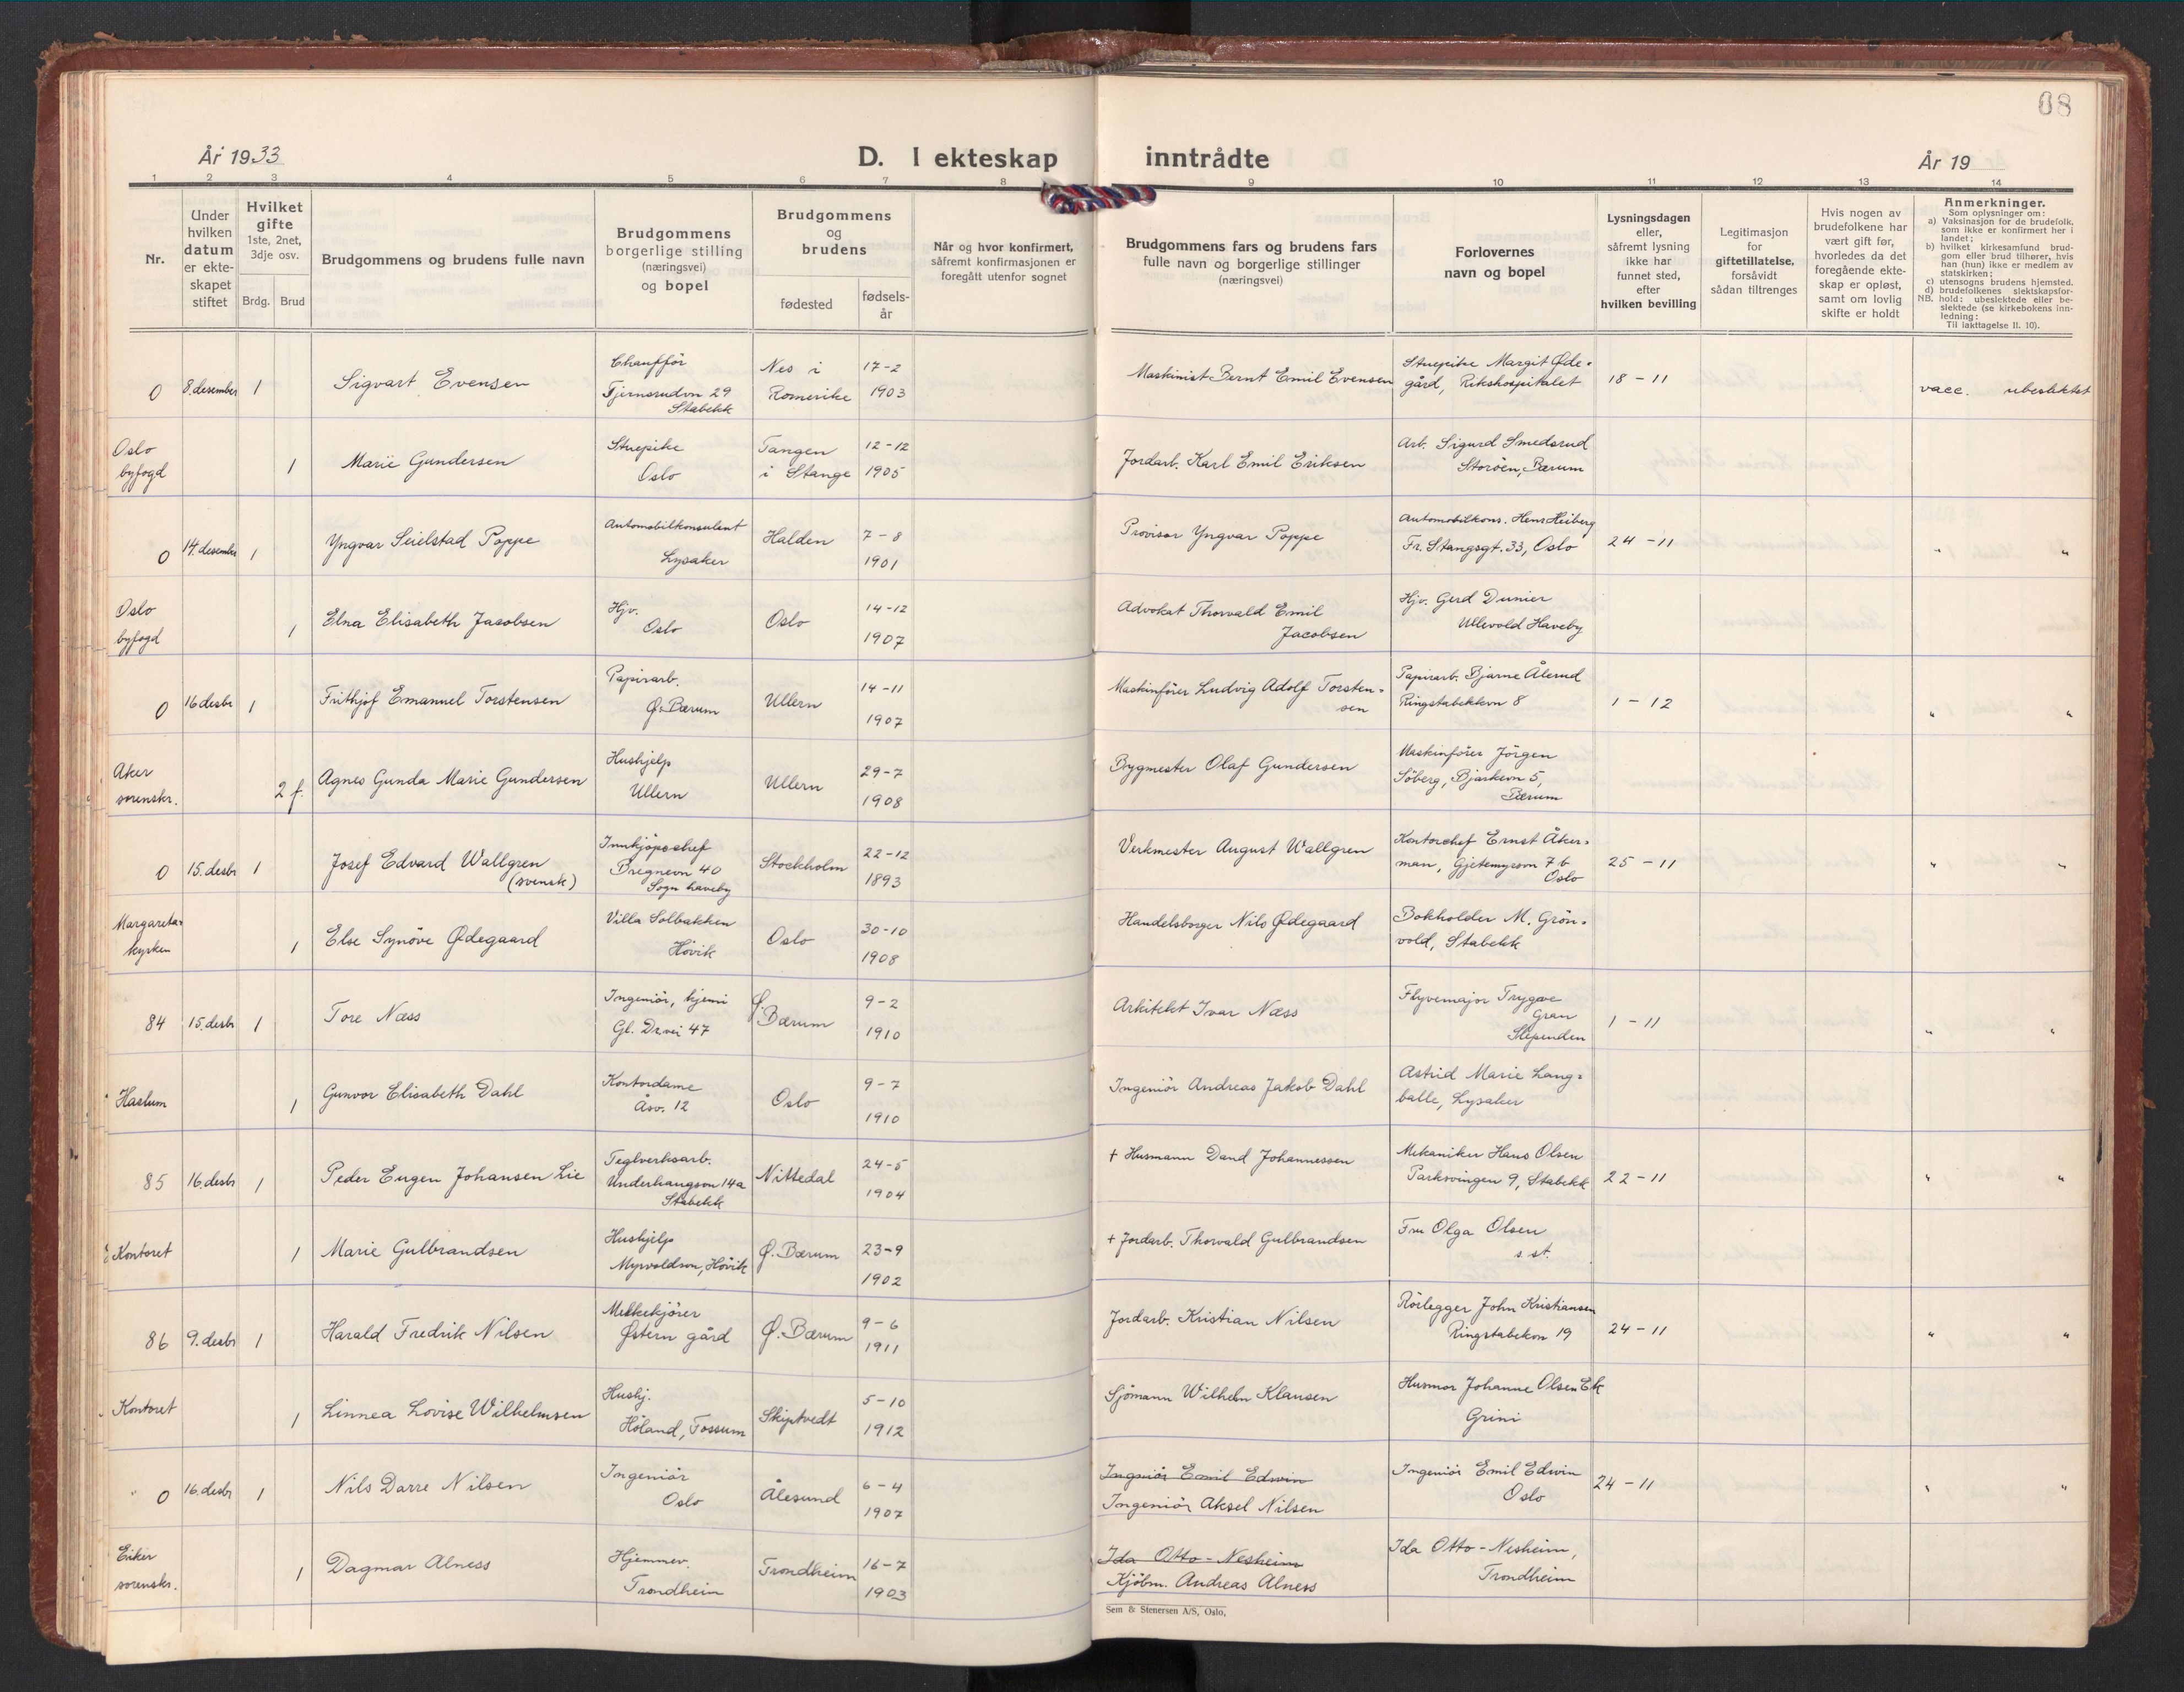 08
År 1933
D. I ekteskap inntrådte
År 19
1 2 3 4 5 6 7 8 9 10 11 12 13 14
Nr.
Under
hvilken
datum
er ekte-
skapet
stiftet
Hvilket
gifte
1ste, 2net,
3dje osv.
Brdg. Brud
Brudgommens og brudens fulle navn
Brudgommens
borgerlige stilling
(næringsvei)
og bopel
Brudgommens
og
brudens
fødested
fødsels-
år
Når og hvor konfirmert,
såfremt konfirmasjonen er
foregått utenfor sognet
Brudgommens fars og brudens fars
fulle navn og borgerlige stillinger
(næringsvei)
Forlovernes
navn og bopel
Lysningsdagen
eller,
såfremt lysning
ikke har
funnet sted,
efter
hvilken bevilling
Legitimasjon
for
giftetillatelse,
forsåvidt
sådan tiltrenges
Hvis nogen av
brudefolkene har
vært gift før,
hvorledes da det
foregående ekte-
skap er opløst,
samt om lovlig
skifte er holdt
Anmerkninger.
Som oplysninger om:
a) Vaksinasjon for de brudefolk,
som ikke er konfirmert her i
landet;
b) hvilket kirkesamfund brud-
gom eller brud tilhører, hvis
han (hun) ikke er medlem av
statskirken;
c) utensogns brudens hjemsted.
d) brudefolkenes slektskapsfor-
NB. hold: ubeslektede eller be-
slektede (se kirkebokens inn-
ledning:
Til iakttagelse II. 10).
0 8.desember 1 Sigvart Evensen
Chaufför
Tjernsrudvn 29
Stabekk
Nes i
Romerike
17-2
1903
Maskinist Bernt Emil Evensen
Stuepike Margit Øde-
gård, Rikshospitalet
18-11
vacc. ubeslektet
Oslo
byfogd
1 Marie Gundersen
Stuepike
Oslo
Tangen
i Stange
12-12
1905
Jordarb. Karl Emil Eriksen
Arb. Sigurd Smedsrud
Storöen, Bærum
0 14.desember 1 Yngvar Seielstad Poppe
Automobilkonsulent
Lysaker
Halden
7-8
1901
Provisor Yngvar Poppe
Automobilkons. Hens Heiberg
Fr. Stangsgt. 33, Oslo
24-11
" "
Oslo
byfogd
1 Elna Elisabeth Jacobsen
Hjv.
Oslo
Oslo
14-12
1907
Advokat Thorvald Emil
Jacobsen
Hjv. Gerd Dunier
Ullevold Haveby
0 16 desbr 1 Frithjof Emanuel Torstensen
Papirarb.
Ø. Bærum
Ullern
14-11
1907
Maskinfører Ludvig Adolf Torsten-
sen
Papirarb. Bjarne Ålerud
Ringstabekkvn 8
1-12
" "
Aker
sorenskr.
2 f. Agnes Gunda Marie Gundersen
Hushjelp
Ullern
Ullern
29-7
1908
Bygmester Olaf Gundersen
Maskinfører Jörgen
Söberg, Bjarkevn 5,
Bærum
0 15.desbr 1 Josef Edvard Wallgren
(svensk)
Innkjöpschef
Bregnevn 40
Sogn haveby
Stockholm
22-12
1893
Verkmester August Wallgren
Kontorchef Ernst Åker-
man, Gjetemyrsvn 7 b
Oslo
25-11
" "
Margareta-
kyrkan
1 Else Synöve Ødegaard
Villa Solbakken
Hövik
Oslo
30-10
1908
Handelsborger Nils Ødegaard
Bokholder M. Grön-
vold, Stabekk
84 15.desbr 1 Tore Næss
Ingeniör, kjemi
Gl. Dr.vei 47
Ø.
Bærum
9-2
1910
Arkitekt Ivar Næss
Flyvemajor Trygve
Gran
Slependen
1-11
" "
Haslum
1 Gunvor Elisabeth Dahl
Kontordame
Åsv. 12
Oslo
9-7
1910
Ingeniör Andreas Jakob Dahl
Astrid Marie Lang-
balle, Lysaker
85 16.desbr 1 Peder Eugen Johansen Lie
Teglverksarb.
Underhaugsvn 14a
Stabekk
Nittedal
24-5
1904
+ Husmann David Johannessen
Mekaniker Hans Olsen
Parksvingen 9, Stabekk
22-11
" "
Kontoret
1 Marie Gulbrandsen
Hushjelp
Myrvoldsvn, Hövik
Ø. Bærum
23-9
1902
+ Jordarb. Thorvald Gulbrandsen
Fru Olga Olsen
s. st.
86 9.desbr 1 Harald Fredrik Nilsen
Melkekjörer
Østern gård
Ø. Bærum
9-6
1911
Jordarb. Kristian Nilsen
Rörlegger John Kristiansen
Ringstabekvn 19
24-11
" "
Kontoret
1 Linnea Lovise Wilhelmsen
Hushj.
Höland, Fossum
Skiptvedt
5-10
1912
Sjömann Wilhelm Klausen
Husmor Johanne Olsen Ek
Grini
" 0 16.desbr 1 Nils Darre Nilsen
Ingeniör
Oslo
Ålesund
6-4
1907
Ingeniör Emil Edwin
Ingeniör Aksel Nilsen
Ingeniör Emil Edwin
Oslo
24-11
" "
Eiker
sorenskr.
1 Dagmar Alness
Hjemmev.
Trondheim
Trondheim
16-7
1903
Ida Otto-Nesheim
Kjöbm. Andreas Alness
Ida Otto-Nesheim,
Trondheim
Sem & Stenersen A/S, Oslo,